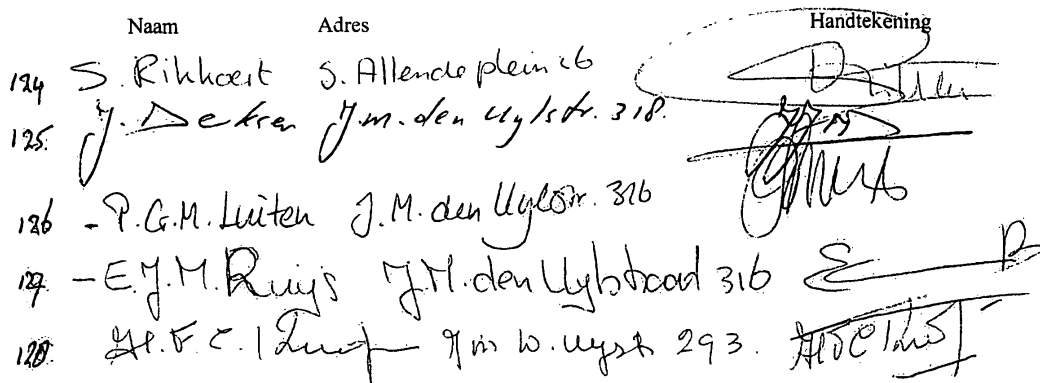 Naam Adres Handtekening
124 S. Rikkoert S. Allendeplein 26
125. J. Derksen J.M. den Uylstr. 318.
126 - P.G.M. Luiten J.M. den Uylstr. 316
127 - E.J.M. Ruijs J.M. den Uylstraat 316
128. H.F.C. 293.